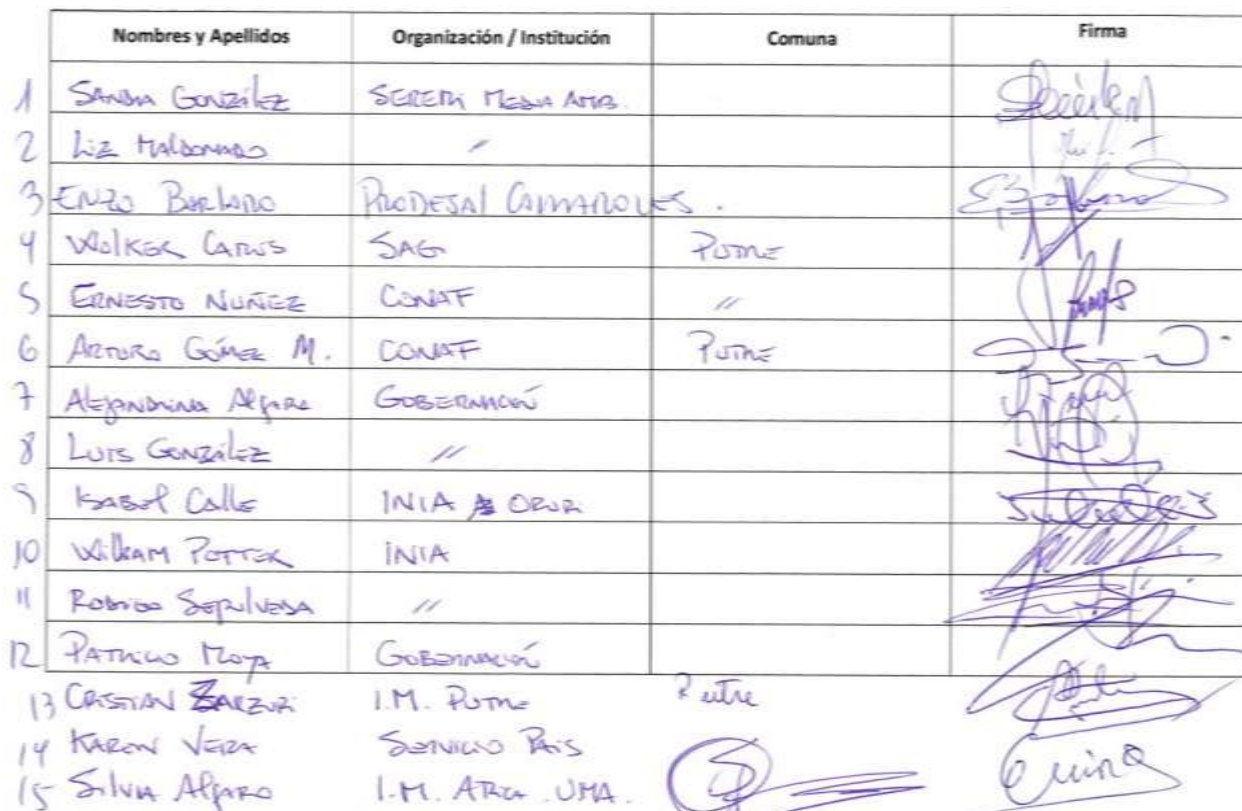 Nombres y Apellidos Organización / Institución Comuna Firma
1 Sandra González SEREMI Media Amb.
2 Liz Maldonado "
3 Enzo PRODESAL CAMARONES.
4 Wolker Carlos SAG Putre
5 Ernesto Nuñez CONAF "
6 Arturo Gómez M. CONAF Putre
7 Alejandrina Alfaro Gobernación
8 Luis González "
9 Isabel Calle INIA
10 William Potter INIA
11 Rodrigo Sepulveda "
12 Patricio Moya Gobernación
13 Cristian Zarzuri I.M. Putre Putre
14 Karen Vera Servicio Pais
15 Silvia Alfaro I.M. Arica . UMA.